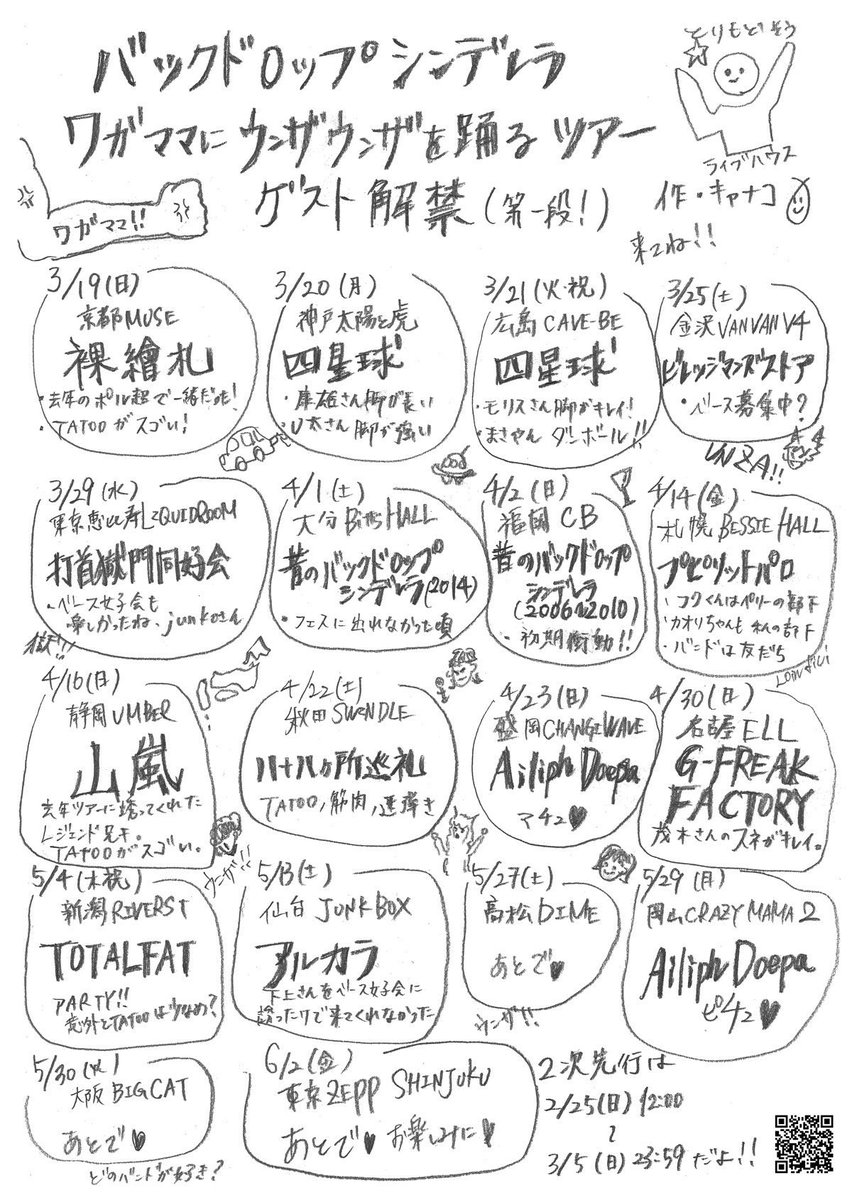 バックドロップシンデレラ
とりもどそう
ワガママにウンザウンザを踊るツアー
ライブハウス
ワガママ!!
ゲスト解禁(第一段!)
作・キャナコ
来てね!!
3/19(日)
京都MUSE
裸繪札
・去年のポル超で一緒だった!
・TATOOがスゴい!
3/20(月)
神戸太陽と虎
四星球
・康雄さん脚が長い
・U太さん脚が強い
3/21(火・祝)
広島CAVE-BE
四星球
・モリスさん脚がキレイ!
・まさやん ダンボール!!
3/25(土)
金沢VANVANV4
ビレッジマンズストア
・ベース募集中?
UNZA!!
3/29(水)
東京恵比寿LIQUIDROOM
打首獄門同好会
・ベース女子会も
楽しかったね、junkoさん
獄!!!
4/1(土)
大分BittsHALL
昔のバックドロップ
シンデレラ(2014)
・フェスに出れなかった頃
4/2(日)
福岡CB
昔のバックドロップ
シンデレラ
(2006~2010)
・初期衝動!!
4/14(金)
札幌BESSIE HALL
プピリットパロ
・コウくんはペリーの部下
・カオリちゃんも私の部下
・バンドは友だち
4/16(日)
静岡UMBER
山嵐
去年ツアーに誘ってくれた
レジェンド兄キ。
TATOOがスゴい。
4/22(土)
秋田SWINDLE
八十八ヶ所巡礼
TATOO,筋肉,速弾き
4/23(日)
盛岡CHANGE WAVE
Ailiph Doepa
アチュ♥
4/30(日)
名古屋ELL
G-FREAK
FACTORY
茂木さんのスネがキレイ。
ウンザ!!
5/4(木祝)
新潟RIVERST
TOTALFAT
PARTY!!
意外とTATOOは少なめ?
5/13(土)
仙台JUNKBOX
アルカラ
下上さんをベース女子会に
誘ったけど来てくれなかった
5/27(土)
高松DIME
あとで♥
ウンザ!!
5/29(月)
岡山CRAZYMAMA2
Ailiph Doepa
ピチュ♥
5/30(火)
大阪BIGCAT
あとで♥
どのバンドが好き?
6/2(金)
東京ZEPP SHINJUKU
あとで♥ お楽しみに♥
2次先行は
2/25(日)12:00
~
3/5(日)23:59だよ!!